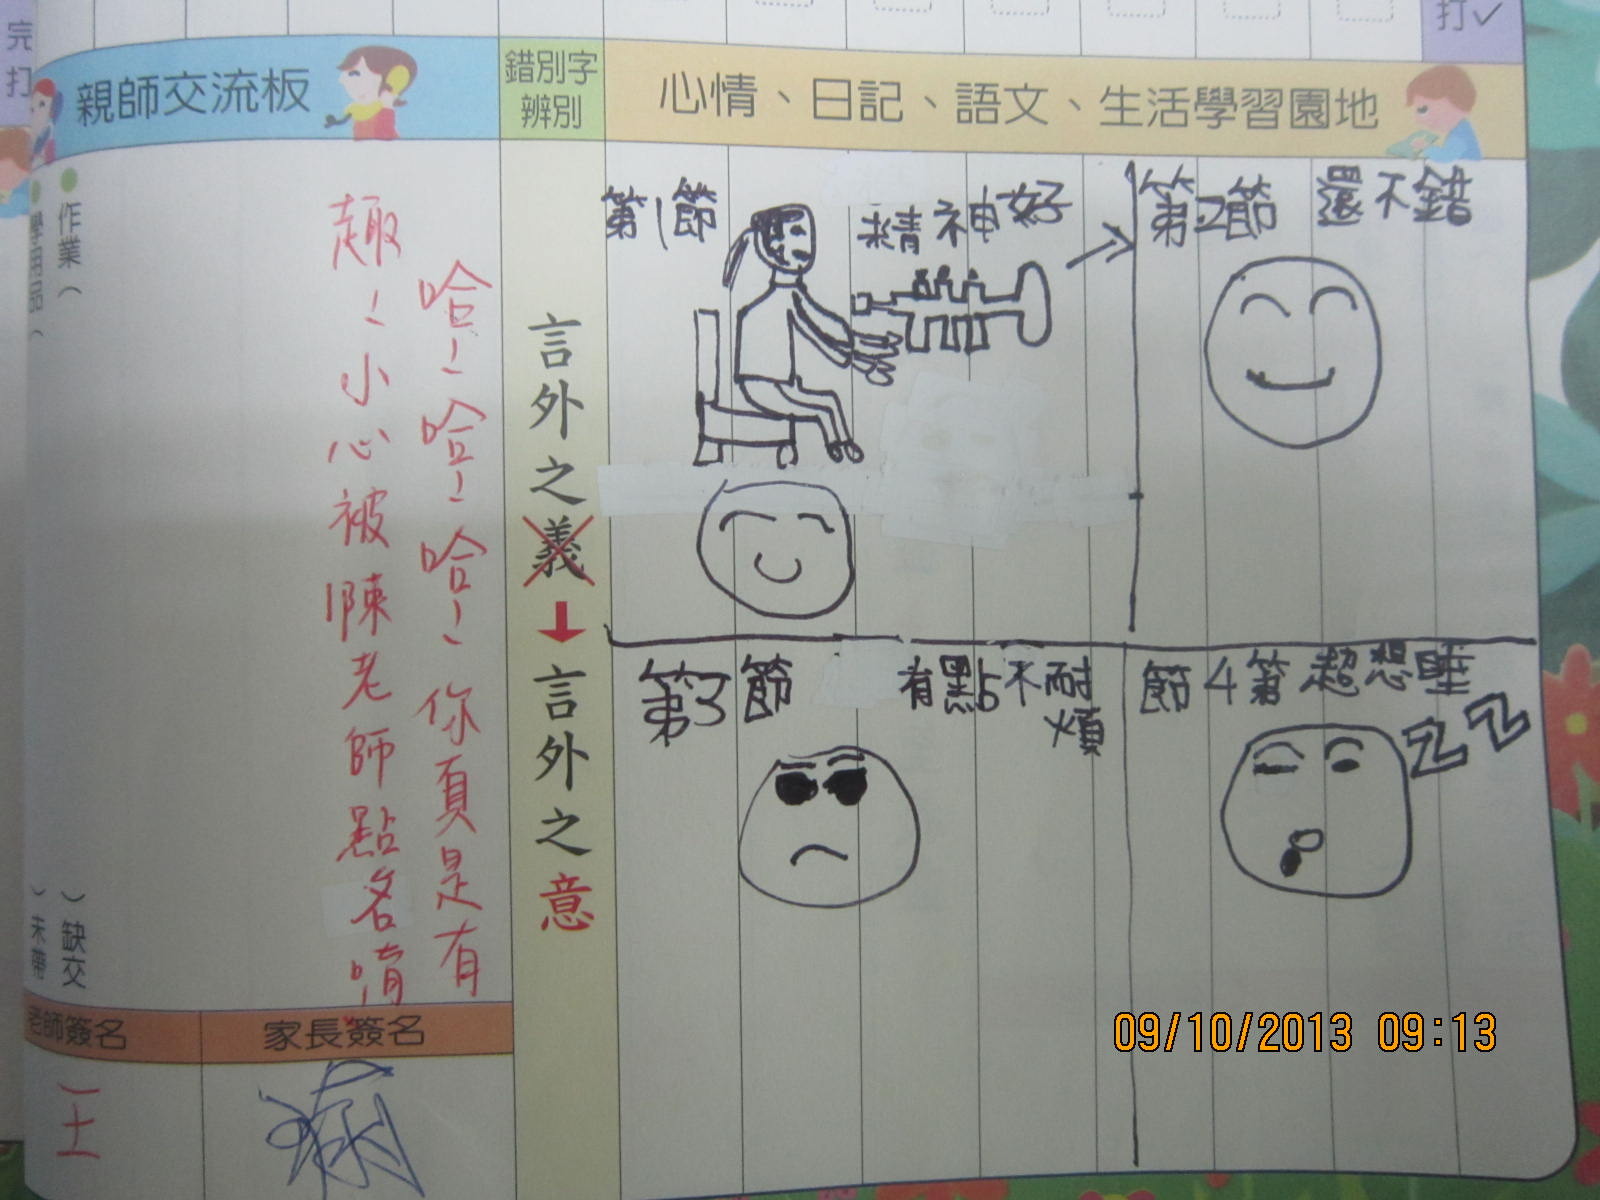 完
打
打✓
親師交流板
錯別字
辨別
心情、日記、語文、生活學習園地
作業（　　）缺交
學用品（　　）未帶
哈！哈！哈！你頁是有
趣！小心被陳老師點名唷
言外之義
言外之意
第1節
精神好
第2節 還不錯
第3節 有點不耐
煩
節4第 超想睡
ZZ
老師簽名
家長簽名
王
09/10/2013 09:13